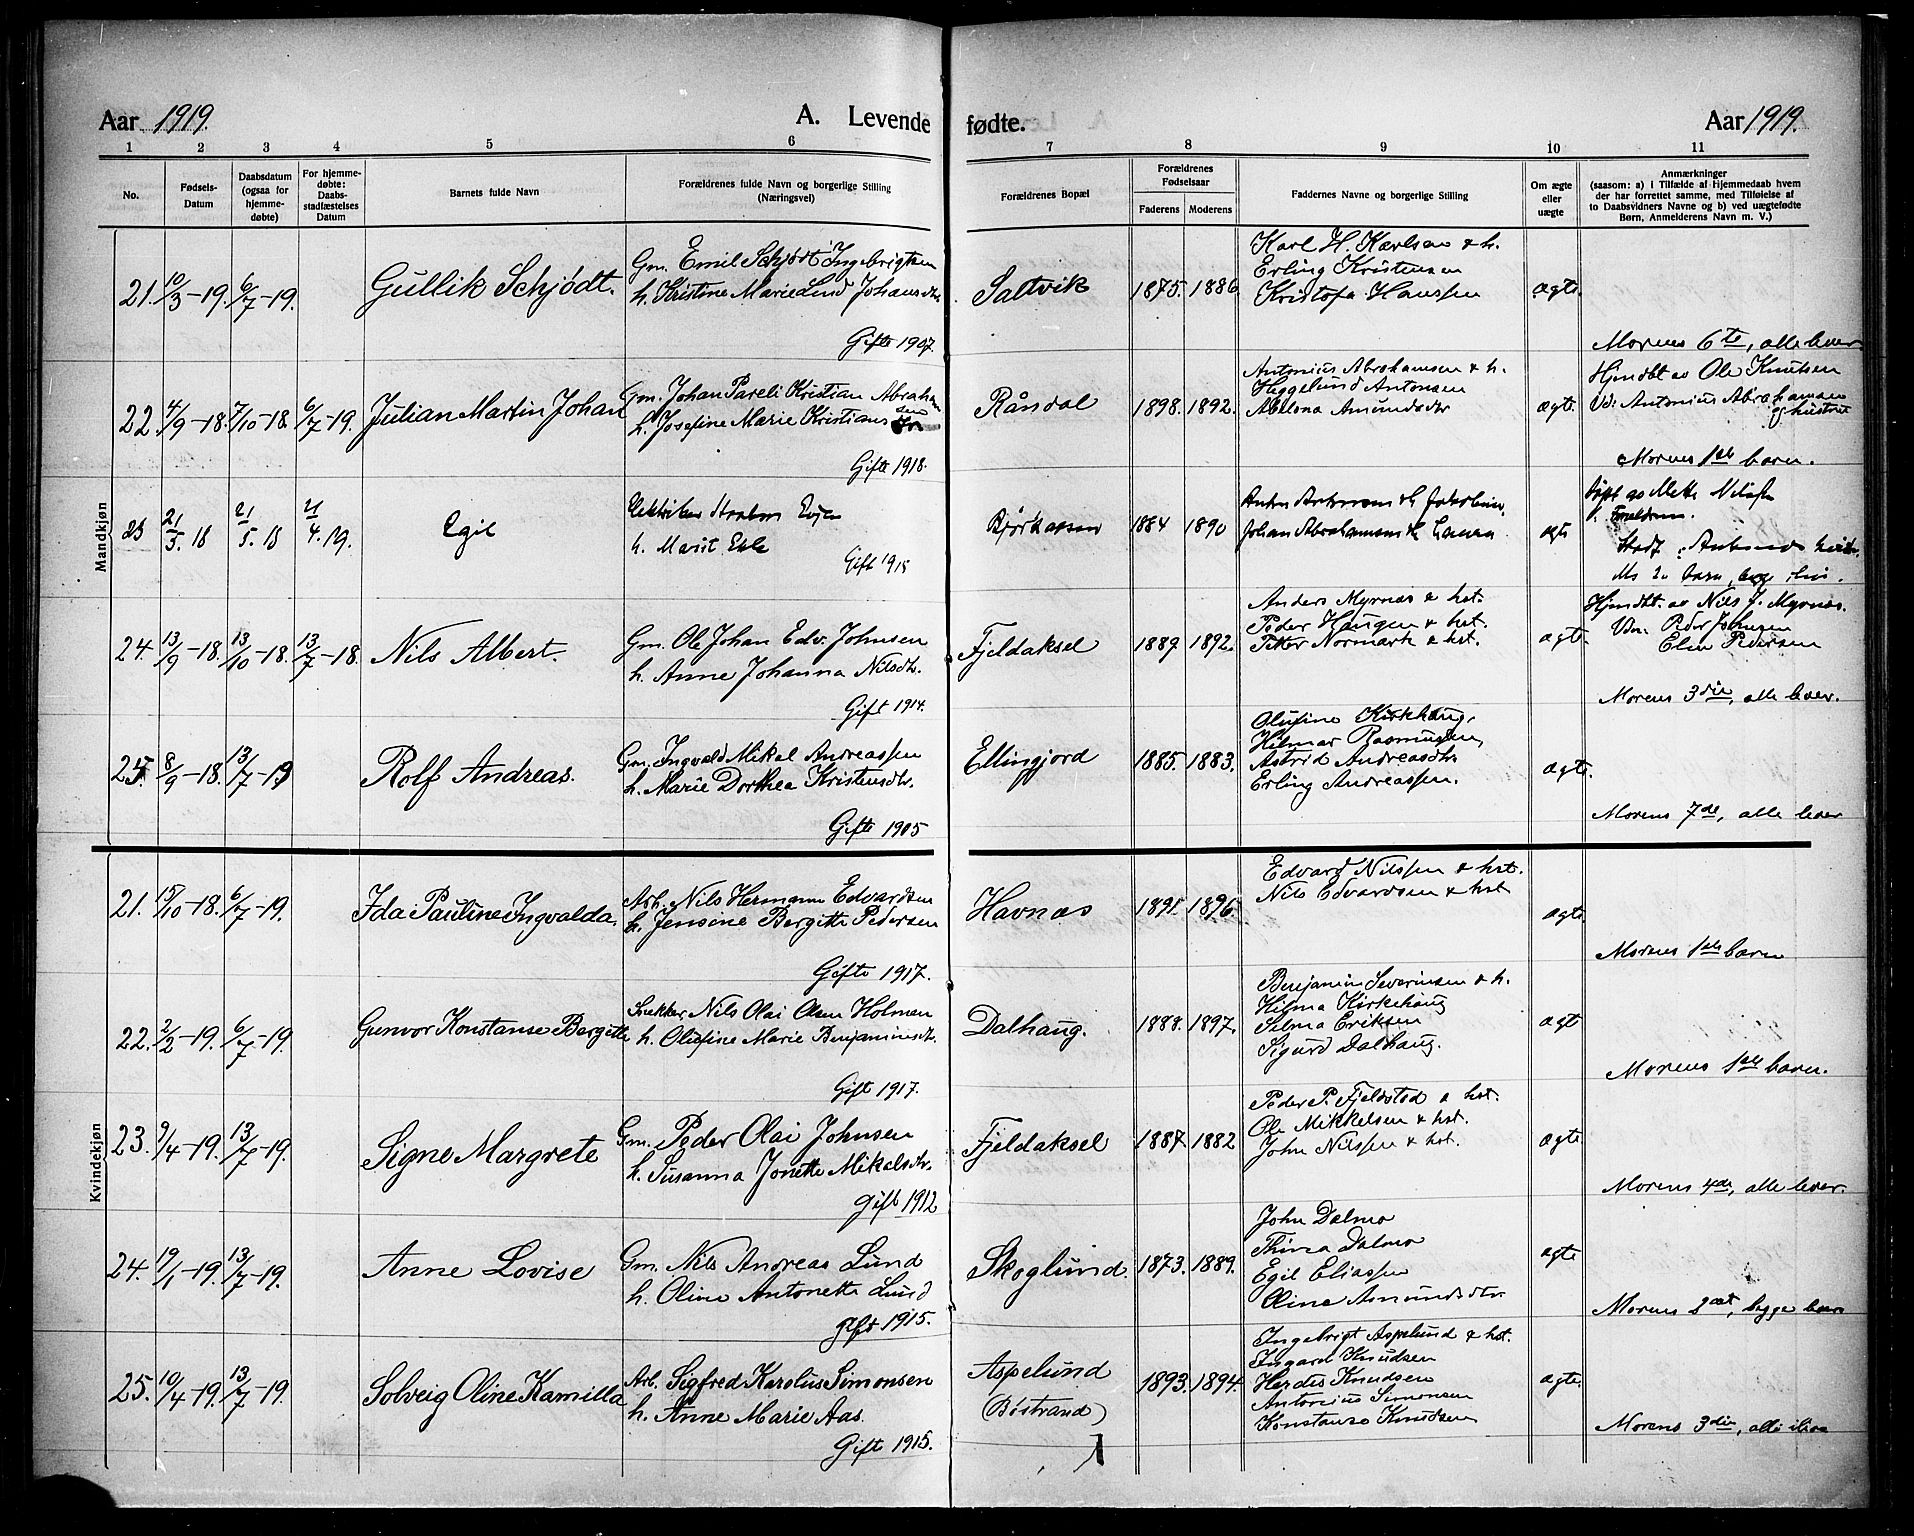 Aar 1919. A. Levende fødte. Aar 1919.
1 2 3 4 5 6 7 8 9 10 11
No.
Fødsels-
Datum
Daabsdatum
(ogsaa for
hjemme-
døbte)
For hjemme-
døbte:
Daabs-
stadfæstelses
Datum
Barnets fulde Navn
Forældrenes fulde Navn og borgerlige Stilling
(Næringsvei)
Forældrenes Bopæl
Forældrenes
Fødselsaar
Faderens Moderens
Faddernes Navne og borgerlige Stilling
Om ægte
eller
uægte
Anmærkninger
(saasom: a) i Tilfælde af Hjemmedaab hvem
der har forrettet samme, med Tilføielse af
to Daabsvidners Navne og b) ved uægtefødte
Børn, Anmelderens Navn m. V.)
Mandkjøn
21. 10/3-19. 6/7-19. Gullik Schjødt.
Gm. Emil Schjødt Ingebrigtsen
h. Kristine Marie Lind Johansdtr
Gifte 1907.
Saltvik 1875. 1886
Karl H. Karlsen & h.
Erling Kristensen
Kristofa Hanssen
ægte
Morens 6te, alle lever
22. 4/9-18. 7/10-18. 6/7-19. Julian Martin Johan
Gm. Johan Pareli Kristian Abraham
h. Josefine Marie Kristians
Gifte 1918.
Råndal 1898. 1892.
Antonius Abrahamsen & h.
Heggelund Antonsen
Amundsdtr
ægte.
Hjmdbt av Ole Knutsen
Vd: Antonius Abrahamsen
og hustru
Morens 1ste barn.
23 21/3. 18 21/5. 18 21/4. 19. Egil
h. Marit
Gift 1915
Bjørkaasen 1884 1890
Johan Abrahamsen & Laura
ægte
Døpt av Mette Nilsen
V. Foreldrene.
Ms 2n barn,
24. 13/9-18. 13/10-18. 13/7-18. Nils Albert.
Gm. Ole Johan Edv. Johnsen
h. Anne Johanna Nilsdtr.
Gift 1914.
Fjeldaksel 1889 1892.
Anders Myrnæs & hst.
Peder Haugen & hst.
Petter Normark & hst.
ægte
Hjmdbt. av Nils J. Myrnæs.
Vdn: Peder Johnsen
Elen Pedersen
Morens 3die, alle lever.
25. 8/9-18. 13/7-19 Rolf Andreas.
Gm. Ingvald Mikal Andreassen
h. Marie Dorthea Kristensdtr.
Gifte 1905
Ellingjord 1885. 1883.
Olufine Kirkhaug,
Hilmar Rasmussen,
Astrid Andreasdtr
Erling Andreassen.
ægte.
Morens 7de, alle lever
Kvindekjøn
21. 15/10-18. 6/7-19. Ida Pauline Ingvalda.
Arb. Nils Hermann Edvardsen
h. Jensine Bergitte Pedersen
Gifte 1917.
Havnæs 1891. 1896.
Edvard Nilssen & hst.
Nils Edvardsen & hst
ægte.
Morens 1ste barn
22. 2/2-19. 6/7-19. Gunvor Konstanse Bergitte
Snekker Nils Olai Olsen Holmen
h. Olufine Marie Benjaminsdtr.
Gift 1917.
Dalhaug. 1888. 1897.
Benjamin Severinsen & h.
Hilma Kirkehaug
Selma Eriksen
Sigurd Dalhaug.
ægt
Morens 1ste barn.
23. 9/4-19. 13/7-19. Signe Margrete
Gm. Peder Olai Johnsen
h. Susanna Jonette Mikalsdtr.
gift 1912
Fjeldaksel 1887. 1882
Peder P. Fjeldstad & hst.
Ole Mikkelsen & hst
John Nilssen & hst.
ægte
Morens 4de, alle lever.
24. 19/1-19. 13/7-19. Anne Lovise
Gm. Nils Andreas Lund
h. Oline Antonette Lund
gift 1915.
Skoglund. 1873. 1889.
John Dalmo
Thina Dalmo
Egil Eliassen
Oline Amundsdtr.
ægte
Morens 2det, begge lever
25. 10/4-19. 13/7-19. Solveig Oline Kamilla
Arb. Sigfred Karolus Simonsen
h. Anne Marie Aas.
Gift 1915.
Aspelund
(Bøstrand)
1893. 1894.
Ingebrigt Aspelund & hst.
Ingard Knudsen
Herdis Knudsen
Antonius Simonsen
Konstanse Knudsen
ægte.
Morens 3die, alle